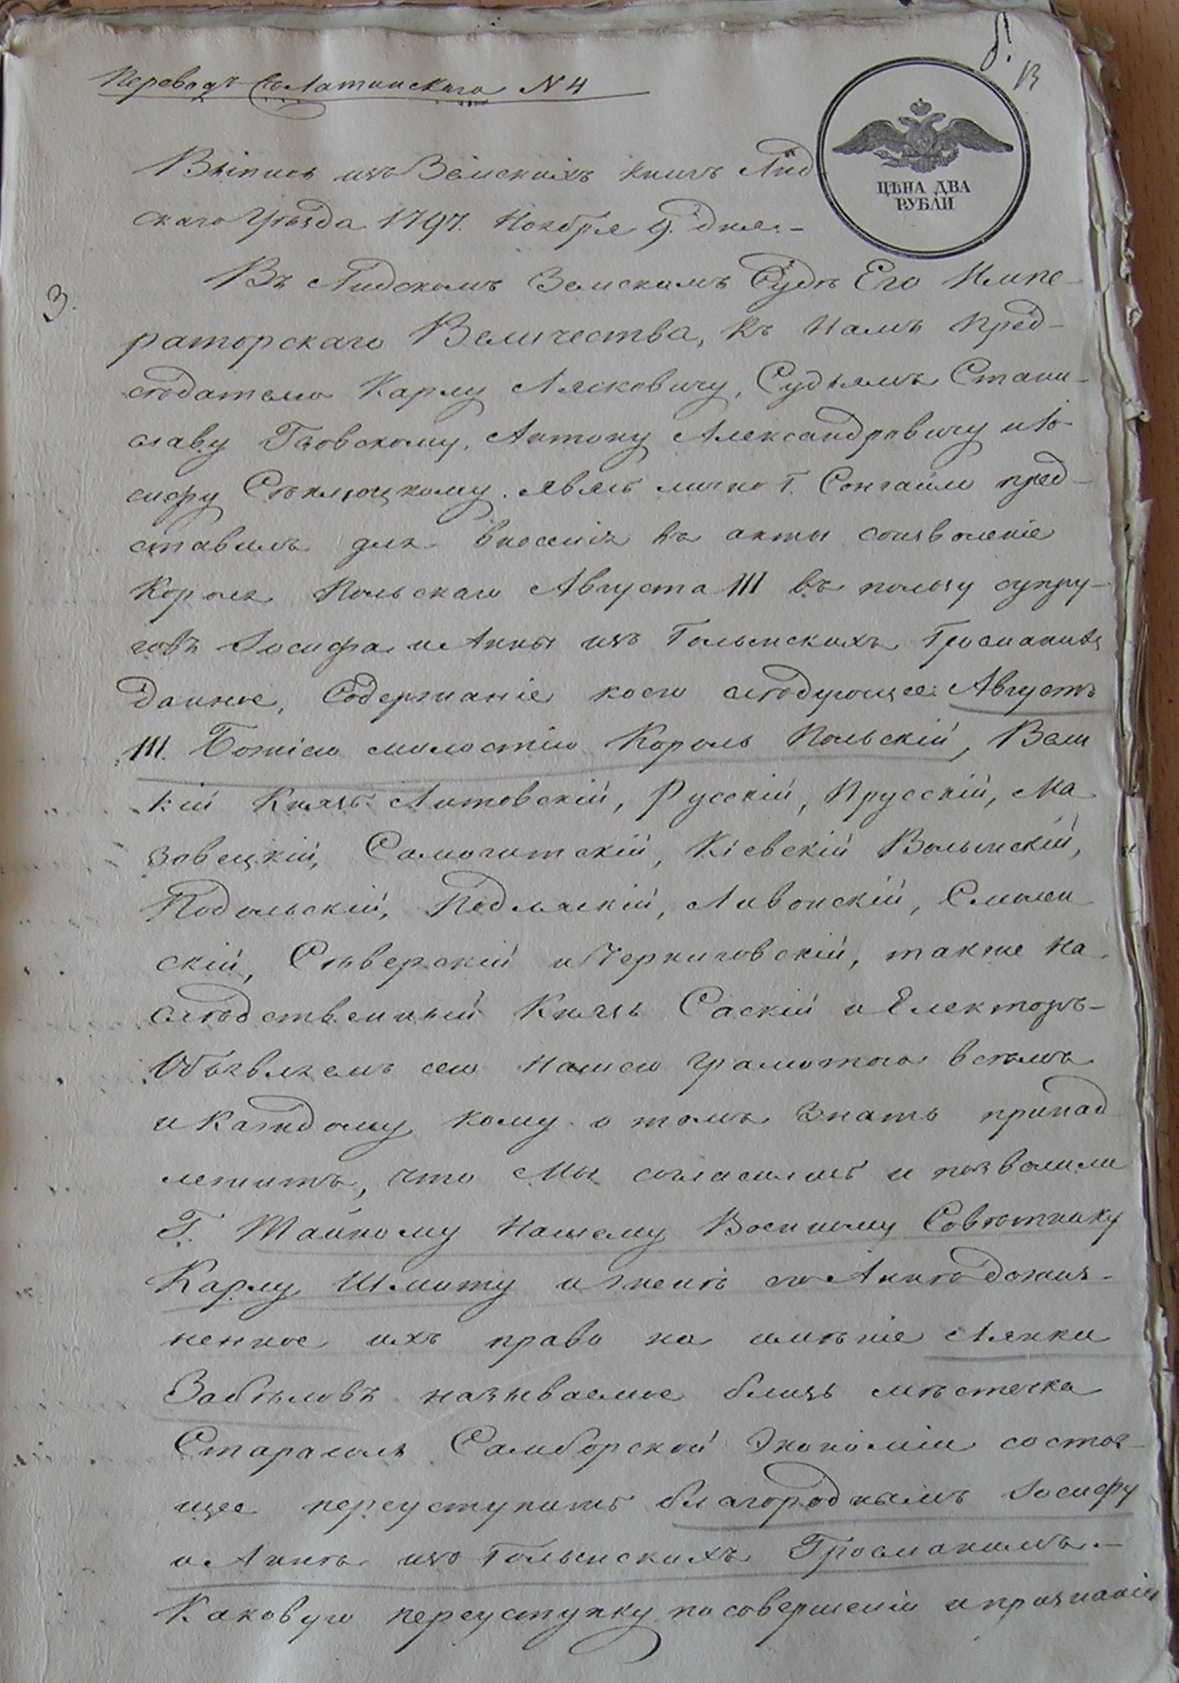 Переводъ съ Латинскаго N 4
13
ЦѢНА ДВА
РУБЛИ
Выпись изъ Земскихъ книгъ Лид
скаго Уѣзда 1797. Ноября 9. дня.-
3.
Въ Лидскомъ Земскомъ Судѣ Его Импе-
раторскаго Величества, къ Намъ Пред-
сѣдателю Карлу Лясковичу, Судьямъ Стани-
славу Антону Александровичу и Іо-
сифу явясь лично Г. Сонгайло пред-
ставилъ для внесенія въ акты соизволеніе
Короля Польскаго Августа III въ пользу супру-
говъ Іосифа и Анны изъ Гольмскихъ
данное, Содержаніе коего слѣдующее: Августъ
III. Божіею милостію Король Польскій, Вели
кій Князь Литовскій, Русскій, Прусскій, Ма
зовецкій, Самогитскій, Кіевскій Волынскій,
Подольскій, Подляскій, Ливонскій, Смолен
скій, Сѣверскій и Черниговскій, также На
слѣдственный Князь Саскій и Електоръ-
Объявляемъ сею Нашею грамотою всѣмъ
и каждому кому о томъ знать принад
лежитъ, что Мы согласились и позволили
Г. Тайному Нашему Военному Совѣтнику
Карлу Шмиту и женѣ его Аннѣ дожиз-
ненное ихъ право на имѣніе Лянки
Забѣловъ называемое близь мѣстечка
Старасоль Самборской Экономіи состоя-
щее переуступить благороднымъ Іосифу
и Аннѣ изъ Гольмскихъ Гросманамъ.-
Каковую переуступку по совершеніи и признаніи